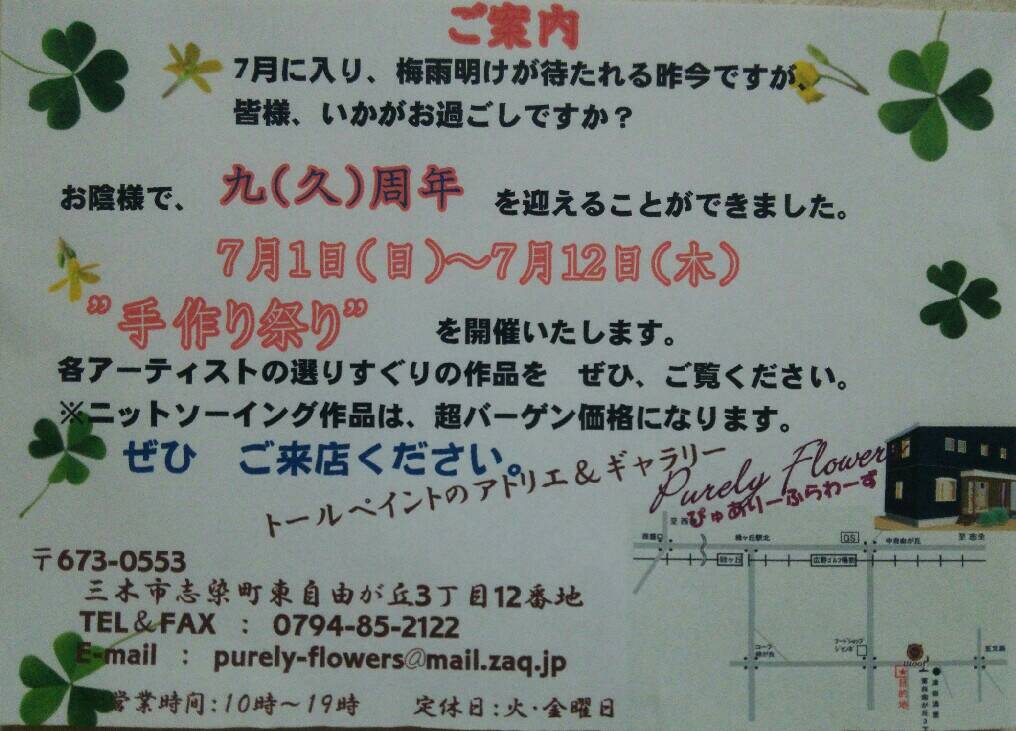 ご案内
7月に入り、梅雨明けが待たれる昨今ですが、
皆様、いかがお過ごしですか？
お陰様で、 九(久)周年 を迎えることができました。
7月1日(日)～7月12日(木)
”手作り祭り” を開催いたします。
各アーティストの選りすぐりの作品を　ぜひ、ご覧ください。
※ニットソーイング作品は、超バーゲン価格になります。
ぜひ　ご来店ください。
トールペイントのアトリエ＆ギャラリー
Purely Flower
ぴゅありーふらわーず
〒673-0553
三木市志染町東自由が丘3丁目12番地
TEL＆FAX ： 0794-85-2122
E-mail ： purely-flowers@mail.zaq.jp
営業時間:10時～19時　定休日:火・金曜日
緑が丘駅北
GS
中自由が丘
至志染
広野ゴルフ場前
woof
★目的地